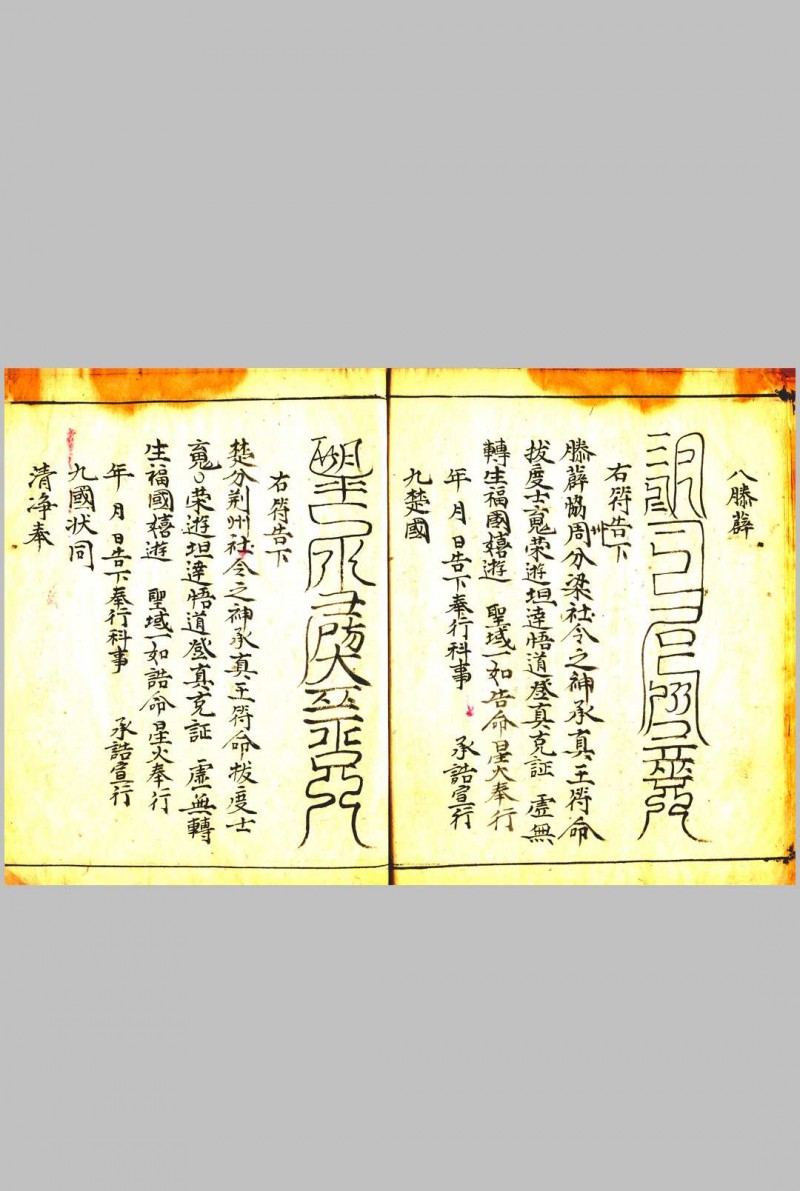 八滕薛
右符告下
滕薛恊周分梁州社令之神承真王符命
拔度士寃荣遊坦達悟道登真克証　虛無
轉生福國嬉遊　聖域一如告命星火奉行
年　月　日告下奉行科事　承誥宣行
九楚國
右符告下
楚分荆州社令之神承真王符命拔度士
寃荣遊坦達悟道登真克証　虛無轉
生福國嬉遊　聖域一如誥命星火奉行
年　月　日告下奉行科事　承誥宣行
九國狀同
清净奉